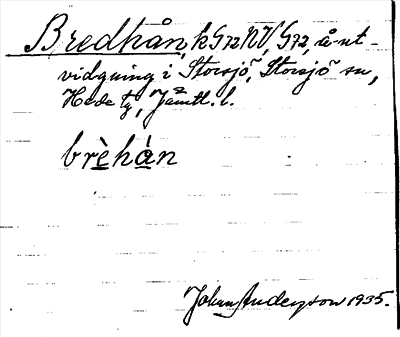 Bredhån, k G 72 NV, G 72, å-ut-
vidgning i Storsjö, Storsjö sn,
Hede tg, Jämtl. l.
brèhán
Johan Anderson 1935.